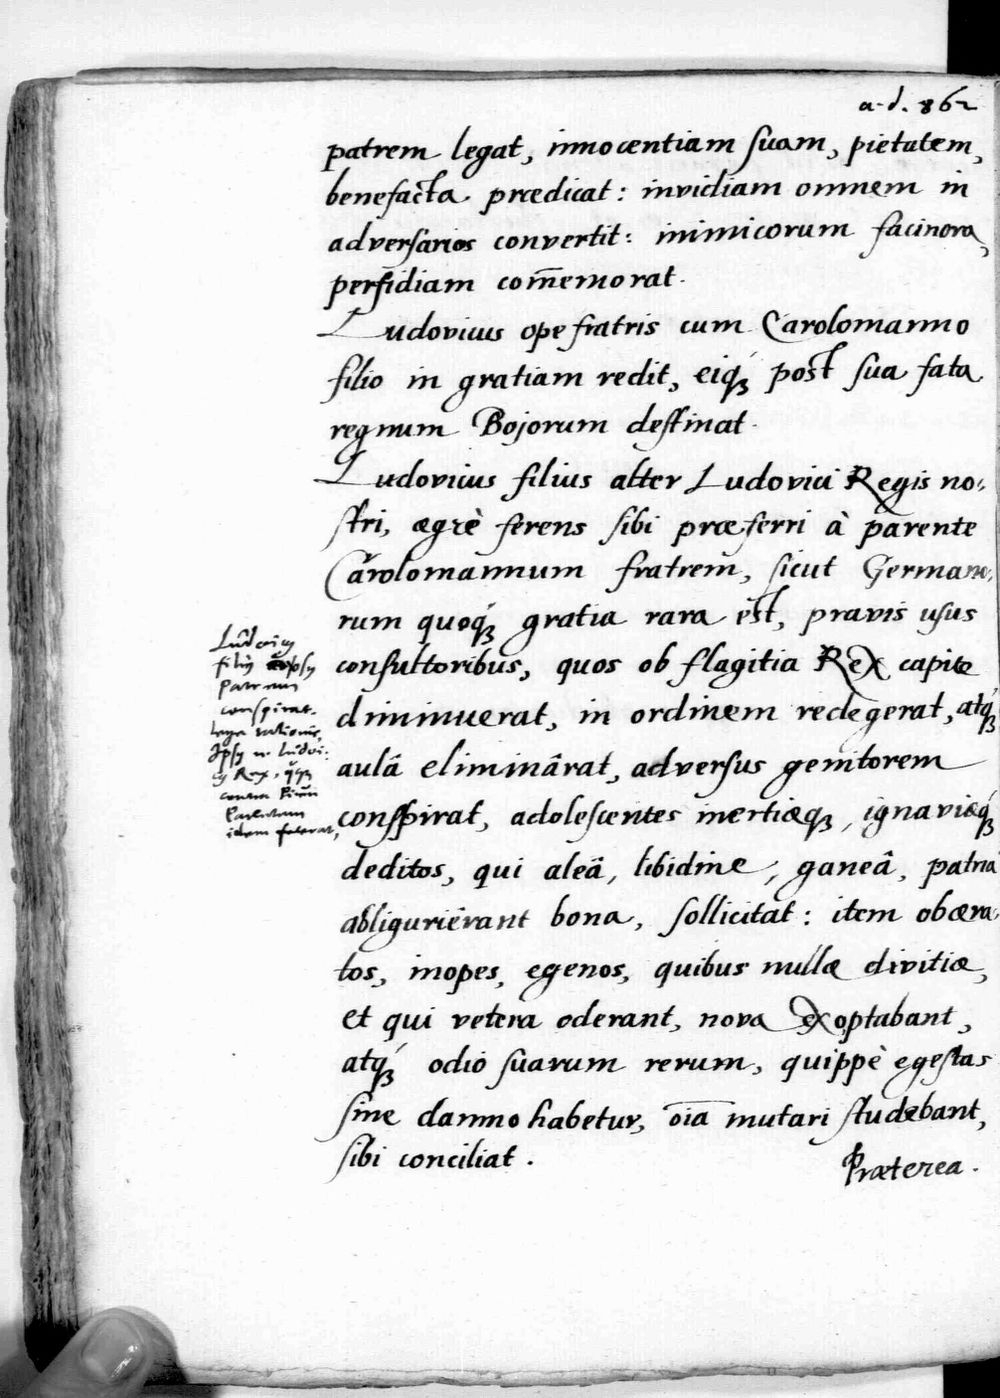 a. d. 862
patrem legat, innocentiam suam, pietatem,
benefacta prædicat: invidiam omnem in
adversarios convertit: inimicorum facinora,
perfidiam com̄emorat.
Ludovicus ope fratris cum Carolomanno
filio in gratiam redit, eiq́ꝫ post sua fata
regnum Bojorum destinat.
Ludovicus filius alter Ludovici Regis no-
stri, ægrè ferens sibi præferri à parente
Carolomannum fratrem, sicut Germano-
rum quoq́ꝫ gratia rara est, pravis usus
consultoribus, quos ob flagitia Rex capite
diminuerat, in ordinem redegerat, atq́ꝫ
aulâ eliminârat, adversus genitorem
conspirat, adolescentes inertiæqꝫ, ignaviæq́ꝫ
deditos, qui aleâ, libidine, ganeâ, patria
abliguriêrant bona, sollicitat: item obæra-
tos, inopes, egenos, quibus nullæ divitiæ,
et qui vetera oderant, nova exoptabant,
atq́ꝫ odio suarum rerum, quippè egestas
sine damno habetur, oīa mutari studebant,
sibi conciliat.
Præterea.
filius
patrem
conspirat.
Rex,
contra
idem fecerat,